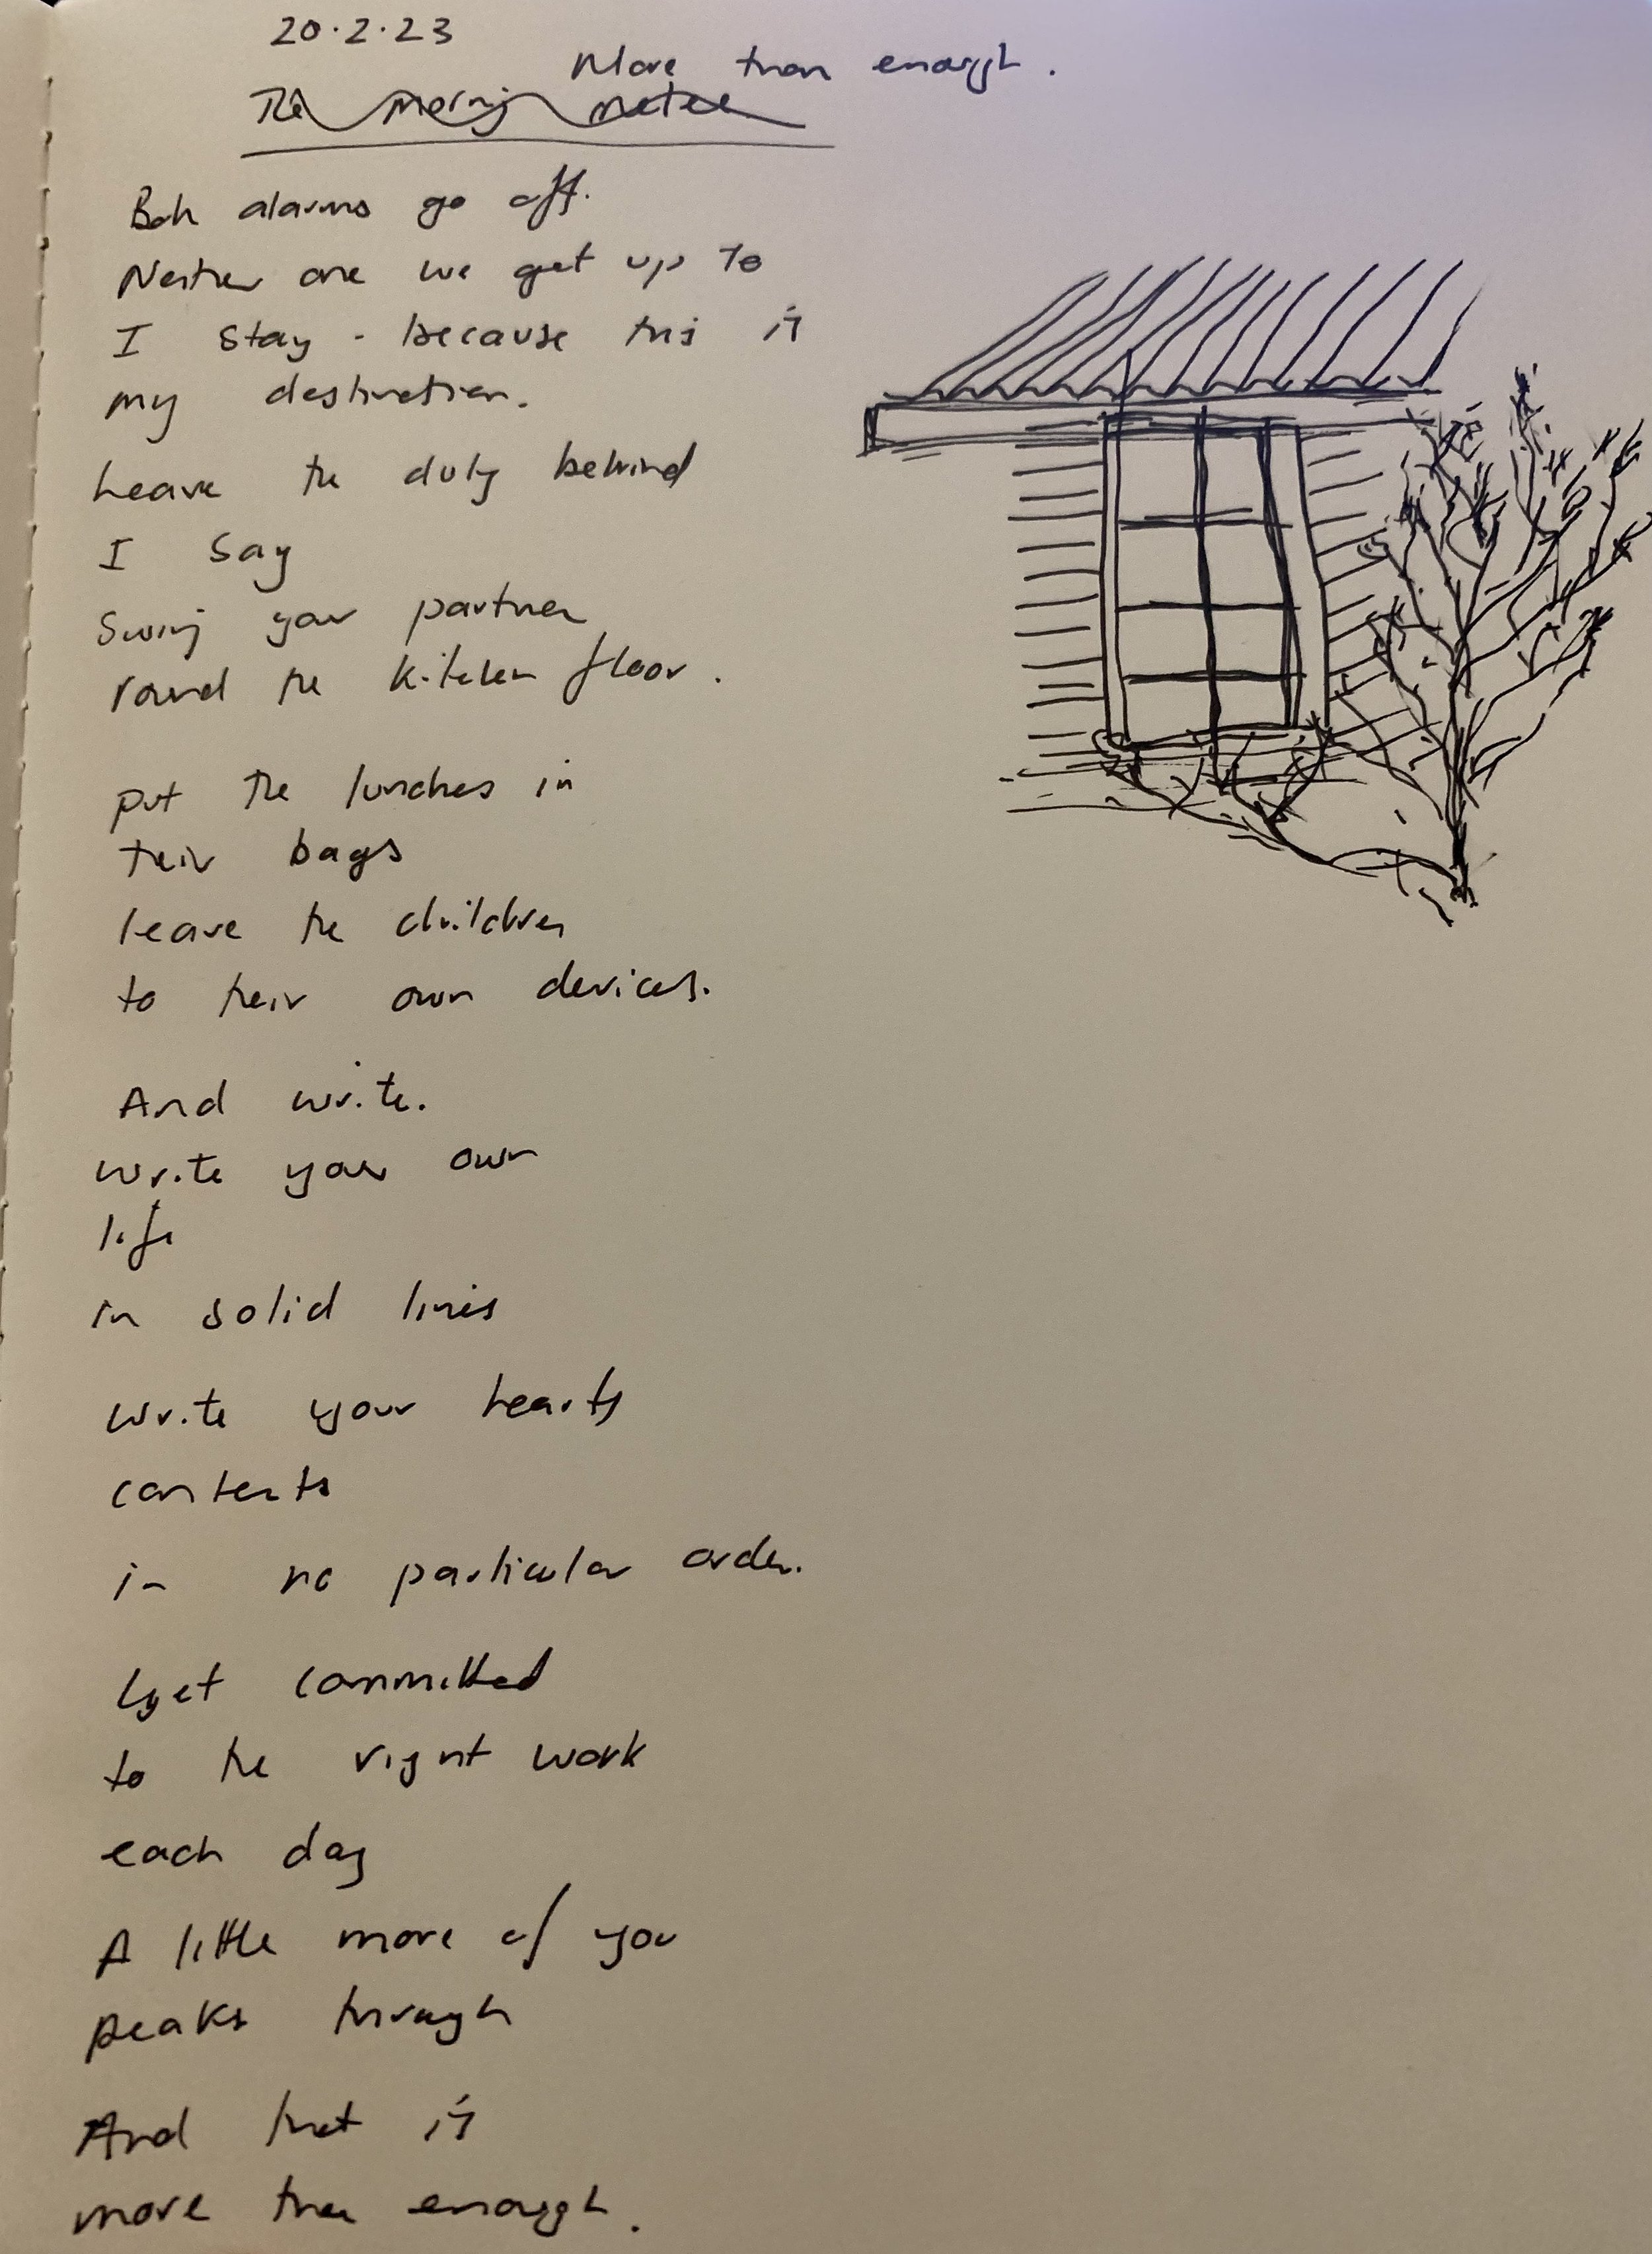 20.2.23
More than enough.
The morning
Both alarms go off.
Neither one we get up to
I stay - because this is
my destination.
Leave the duty behind
I say
Swing your partner
round the kitchen floor.
put the lunches in
their bags
leave the children
to their own devices.
And write.
write your own
life
in solid lines
write your hearts
contents
in no particular order.
Get committed
to the right work
each day
A little more of you
peaks through
And that is
more than enough.